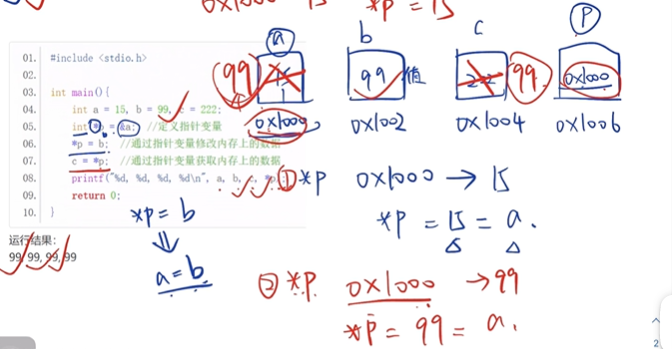 0x1000 15 *p = 15
a b c P
99 15 99 值 222 99 0x1000
0x1000 0x1002 0x1004 0x1006
01. #include <stdio.h>
02.
03. int main(){
04. int a = 15, b = 99, c = 222;
05. int *p = &a; //定义指针变量
06. *p = b; //通过指针变量修改内存上的数据
07. c = *p; //通过指针变量获取内存上的数据
08. printf("%d, %d, %d, %d\n", a, b, c, *p
09. return 0;
10. }
① *p 0x1000 → 15
*p = 15 = a.
*p = b
⇓
a = b
运行结果:
99, 99, 99, 99
② *p 0x1000 → 99
*p = 99 = a.
2